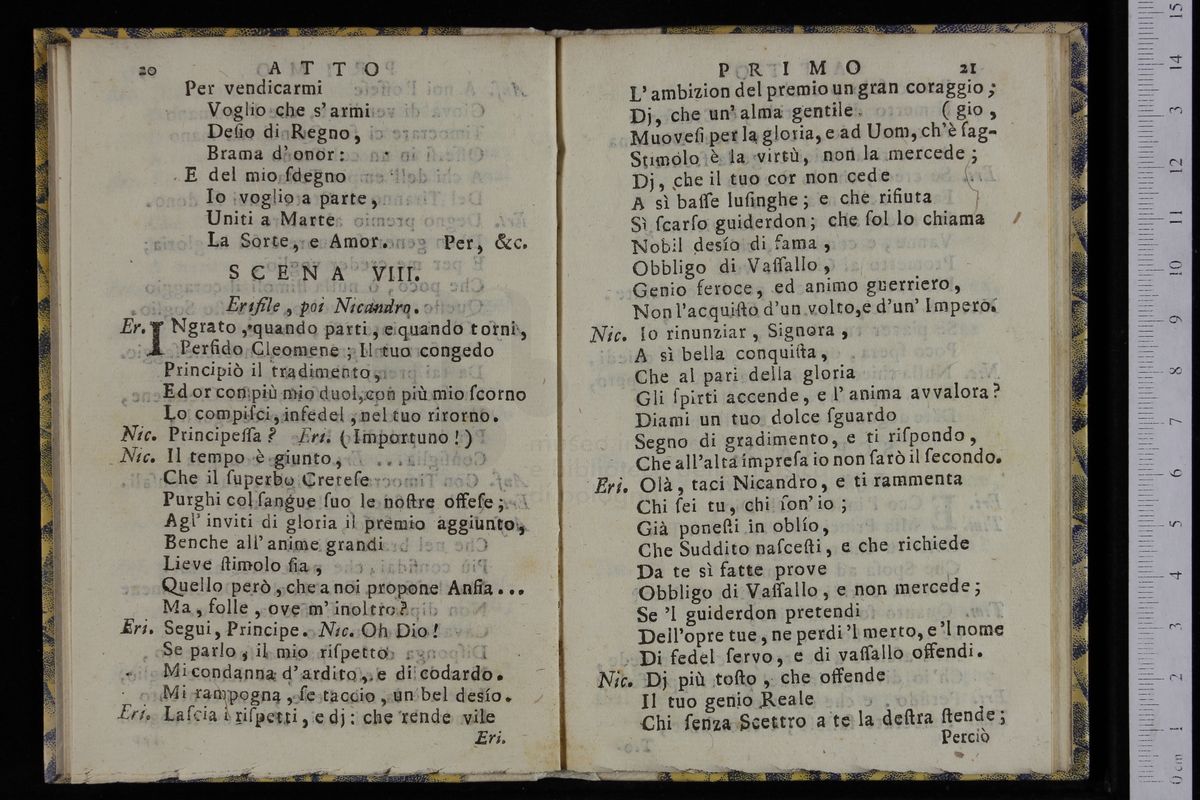 20 ATTO
Per vendicarmi
Voglio che s'armi
Desio di Regno,
Brama d'onor:
E del mio ſdegno
Io voglio a parte,
Uniti a Marte
La Sorte, e Amor. Per, &c.
SCENA VIII.
Eriſile, poi Nicandro.
Er. INgrato, quando parti, e quando torni,
Perfido Cleomene; Il tuo congedo
Principiò il tradimento,
Ed or con più mio duol, con più mio ſcorno
Lo compiſci, infedel, nel tuo rirorno.
Nic. Principeſſa? Eri. (Importuno!)
Nic. Il tempo è giunto,
Che il ſuperbo Creteſe
Purghi col ſangue ſuo le noſtre offeſe;
Agl' inviti di gloria il premio aggiunto,
Benche all'anime grandi
Lieve ſtimolo ſia,
Quello però, che a noi propone Anſia...
Ma, folle, ove m'inoltro?
Eri. Segui, Principe. Nic. Oh Dio!
Se parlo, il mio riſpetto
Mi condanna d'ardito, e di codardo.
Mi rampogna, ſe taccio, un bel desío.
Eri. Laſcia i riſpetti, e dj: che rende vile
Eri.
PRIMO 21
L'ambizion del premio un gran coraggio;
Dj, che un'alma gentile (gio,
Muoveſi per la gloria, e ad Uom, ch'è ſag-
Stimolo è la virtù, non la mercede;
Dj, che il tuo cor non cede
A sì baſſe luſinghe; e che rifiuta
Sì ſcarſo guiderdon; che ſol lo chiama
Nobil desío di fama,
Obbligo di Vaſſallo,
Genio feroce, ed animo guerriero,
Non l'acquiſto d'un volto, e d'un' Impero.
Nic. Io rinunziar, Signora,
A sì bella conquiſta,
Che al pari della gloria
Gli ſpirti accende, e l'anima avvalora?
Diami un tuo dolce ſguardo
Segno di gradimento, e ti riſpondo,
Che all'alta impreſa io non ſarò il ſecondo.
Eri. Olà, taci Nicandro, e ti rammenta
Chi ſei tu, chi ſon'io;
Già poneſti in oblío,
Che Suddito naſceſti, e che richiede
Da te sì fatte prove
Obbligo di Vaſſallo, e non mercede;
Se 'l guiderdon pretendi
Dell'opre tue, ne perdi 'l merto, e 'l nome
Di fedel ſervo, e di vaſſallo offendi.
Nic. Dj più toſto, che offende
Il tuo genio Reale
Chi ſenza Scettro a te la deſtra ſtende;
Perciò